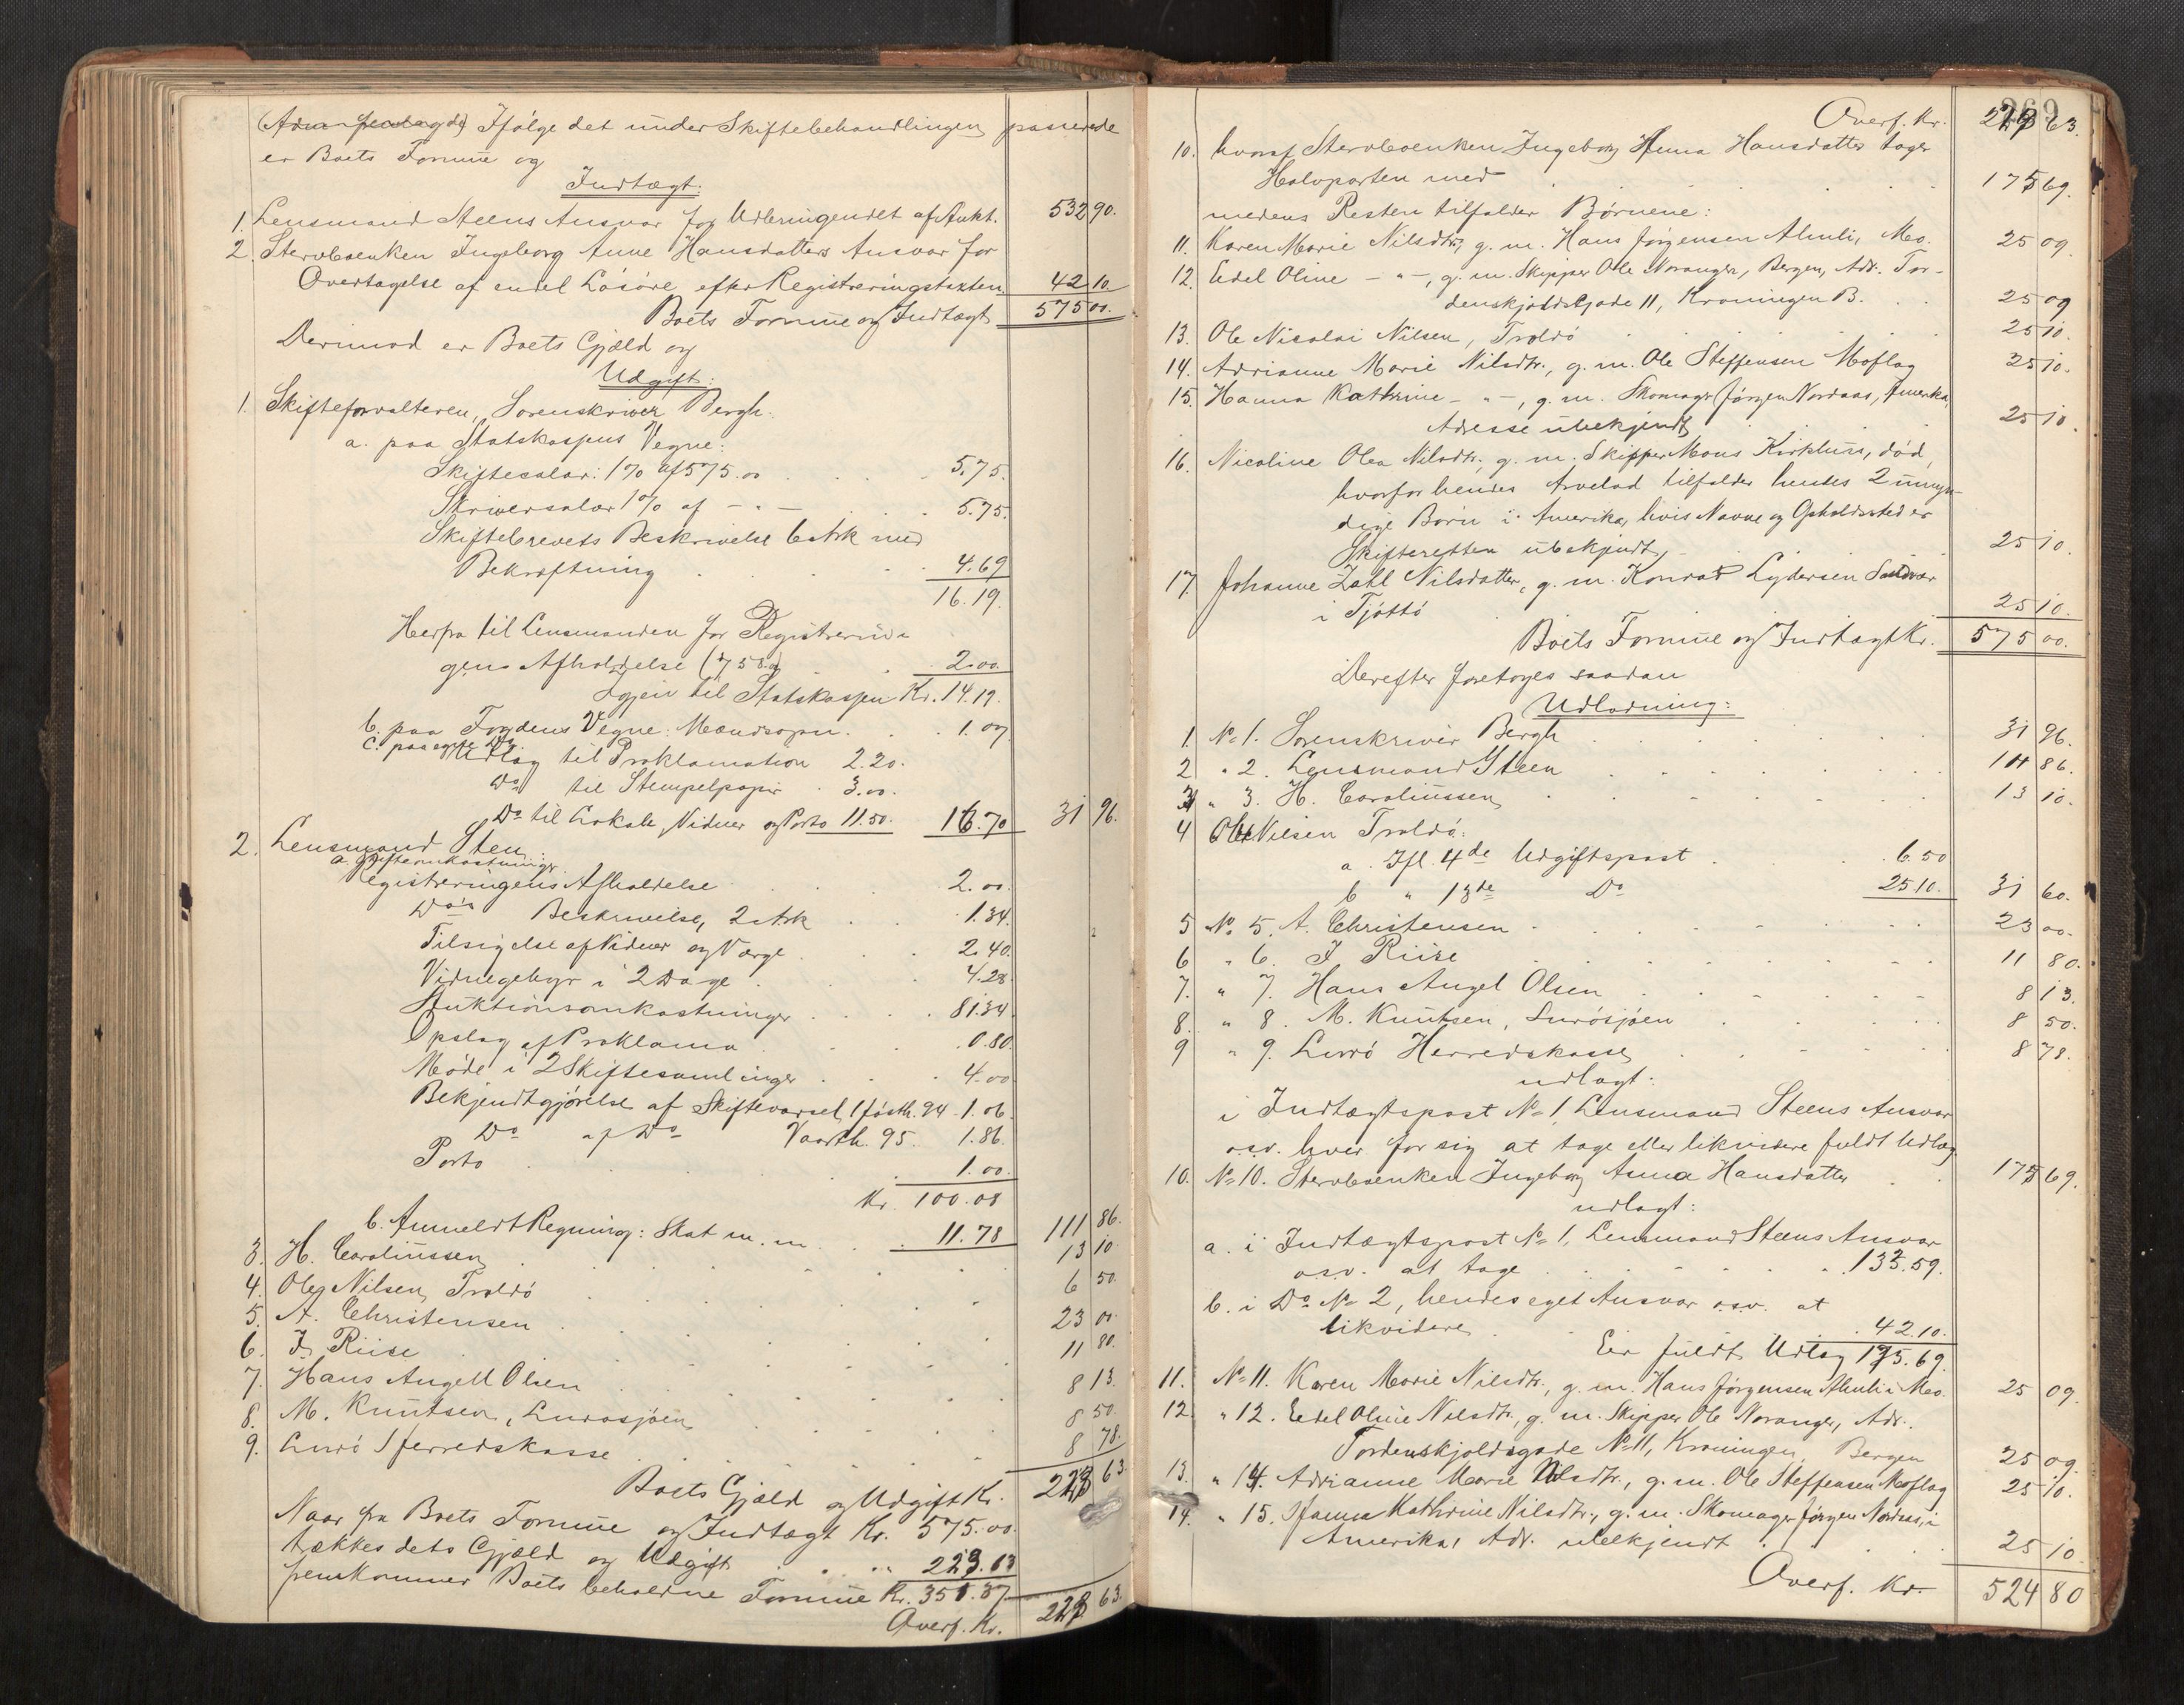 Ifølge det under Skiftebehandlingen passerede
er Boets Formue og
Indtægt:
1. Lensmand Steens Ansvar for Udbringendet af Aukt. 532 90.
2. Stervboenken Ingeborg Anne Hansdatters Ansvar for
Overtagelse af endel Løsøre efter Registreringstaxten 42 10.
Boets Formue og Indtægt 575 00.
Derimod er Boets Gjæld og
Udgift:
1. Skifteforvalteren, Sorenskriver Bergh:
a. paa Statskassens Vegne:
Skiftesalær: 1% af 575.00 5.75.
Skriversalær 1% af - " - 5.75.
Skiftebrevets Beskrivelse 6 Ark med
Bekræftning 4.69
16.19.
Herfra til Lensmanden for Registrerin-
gens Afholdelse 2.00.
Igjen til Statskassen Kr. 14.19.
b. paa Fogdens Vegne: 1.07
c. paa egne Do
Udlæg til Proklamation 2.20.
Do til Stempelpapir 3.00.
Do til Lokale, Vidner og Porto 11.50. 16.70 31 96.
2. Lensmand Steen:
a. Skifteomkostninger
Registreringens Afholdelse 2.00.
Do's Beskrivelse, 2 Ark 1.34.
Tilsigelse af Vidner og Værge 2.40.
Vidnegebyr i 2 Dage 4.28.
Auktionsomkostninger 81.34.
Opslag af Proklama 0.80.
Møde i 2 Skiftesamlinger 4.00
Bekjendtgjørelse af Skiftevarsel, Høstth. 94 1.06.
Do af Do Vaarth. 95. 1.86.
Porto 1.00.
Kr. 100.08
b. Anmeldt Regning: Skat m. m. 11.78 111 86.
3. H. Carolinssen 13 10.
4. Ole Nilsen, Troldø 6 50.
5. A. Christensen 23 00.
6. J. Riise 11 80.
7. Hans Angell Olsen 8 13.
8. M. Knutsen, Lurøsjøen 8 50.
9. Lurø Herredskasse 8 78.
Boets Gjæld og Udgift Kr. 223 63
Naar fra Boets Formue og Indtægt Kr. 575.00.
trækkes dets Gjæld og Udgift 223.63
fremkommer Boets beholdne Formue Kr. 351.37
Overf. Kr. 223 63.
269
Overf. Kr. 223 63.
10. hvoraf Stervboenken Ingeborg Anna Hansdatter tager
Halvparten med 175 69.
medens Resten tilfalder Børnene:
11. Karen Marie Nilsdtr., g. m. Hans Jørgensen Almli, Mo. 25 09.
12. Eedel Oline - " -, g. m. Skipper Ole Noranger, Bergen, Adr. Tor-
denskjoldsgade 11, Kroningen B. 25 09
13. Ole Nicolai Nilsen, Troldø 25 10.
14. Adrianne Marie Nilsdtr., g. m. Ole Steffensen Moflag 25 10.
15. Hanna Kathrine - " -, g. m. Skomager Jørgen Nordaas, Amerika,
Adresse ubekjendt 25 10.
16. Nicoline Olea Nilsdtr., g. m. Skipper Mons Kirkhus, død,
hvorfor hendes Arvelod tilfalder hendes 2 umyn-
dige Børn i Amerika, hvis Navne og Opholdssted er
Skifteretten ubekjendt, 25 10.
17. Johanne Zahl Nilsdatter, g. m. Konrad Lydersen
i Tjøttø 25 10.
Boets Formue og Indtægt Kr. 575 00.
Derefter foretages saadan
Udlodning:
1. No 1. Sorenskriver Bergh 31 96.
2 " 2. Lensmand Steen 111 86.
3 " 3. H. Carolinssen 13 10.
4 Ole Nilsen Troldø:
a. Ifl. 4de Udgiftspost 6.50
b " 13de Do 25.10. 31 60.
5 No 5. A. Christensen 23 00.
6 " 6. J. Riise 11 80.
7. " 7. Hans Angel Olsen 8 13.
8. " 8. M. Knutsen, Lurøsjøen 8 50.
9 " 9. Lurø Herredskasse 8 78.
udlagt:
i Indtægtspost No 1, Lensmand Steens Ansvar
o.s.v. hver for sig at tage eller likvidere fuldt Udlæg
10. No 10. Stervboenken Ingeborg Anna Hansdatter 175 69.
udlagt:
a. i Indtægtspost No 1, Lensmand Steens Ansvar
o.s.v. at tage 133.59.
b. i Do No 2, hendes eget Ansvar o.s.v. at
likvidere 42.10.
Er fuldt Udlæg 175.69.
11. No 11. Karen Marie Nilsdtr., g. m. Hans Jørgensen Almli i Mo. 25 09.
12. " 12. Eedel Oline Nilsdtr., g. m. Skipper Ole Noranger, Adr.
Tordenskjoldsgade No 11, Kroningen, Bergen 25 09.
13. " 14. Adrianne Marie Nilsdtr., g. m. Ole Steffensen Moflag 25 10.
14. " 15. Hanna Kathrine Nilsdtr., g. m. Skomager Jørgen Nordaas, i
Amerika, Adr. ubekjendt 25 10
Overf. Kr. 524 80